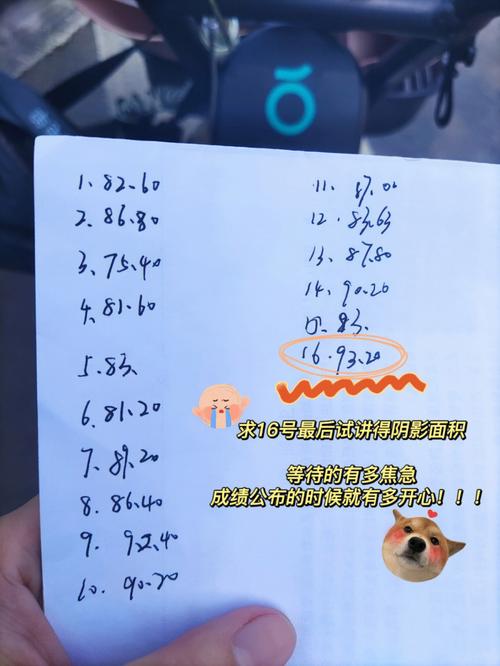 1. 82.60
2. 86.80
3. 75.40
4. 81.60
5. 83.
6. 81.20
7. 89.20
8. 86.40
9. 92.40
10. 90.20
11. 87.00
12. 83.63
13. 87.80
14. 90.20
15. 83.
16. 93.20
求16号最后试讲得阴影面积
等待的有多焦急
成绩公布的时候就有多开心！！！